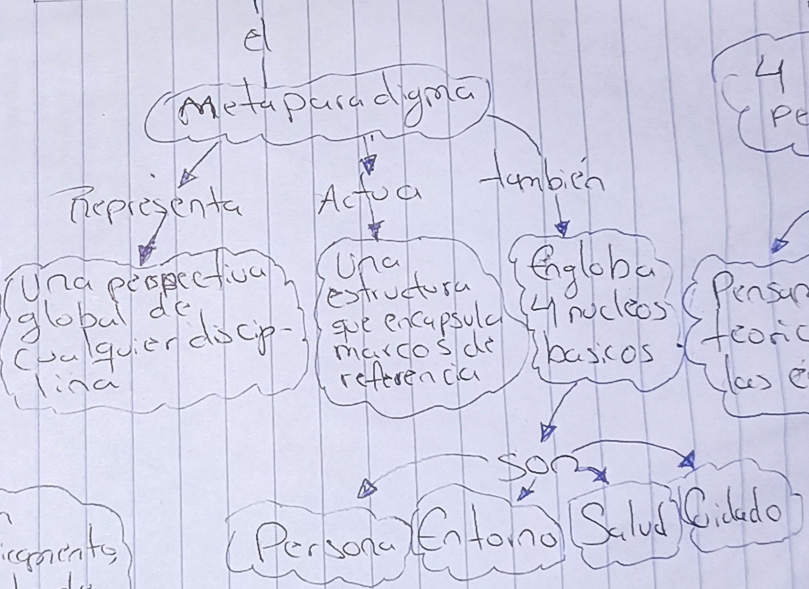 el
Metaparadigma
4
Representa
Actua
también
Una perspectiva
global de
cualquier discip-
lina
Una
estructura
que encapsula
marcos de
referencia
Engloba
4 nucleos
basicos
son
Persona
Entorno
Salud
Cidado